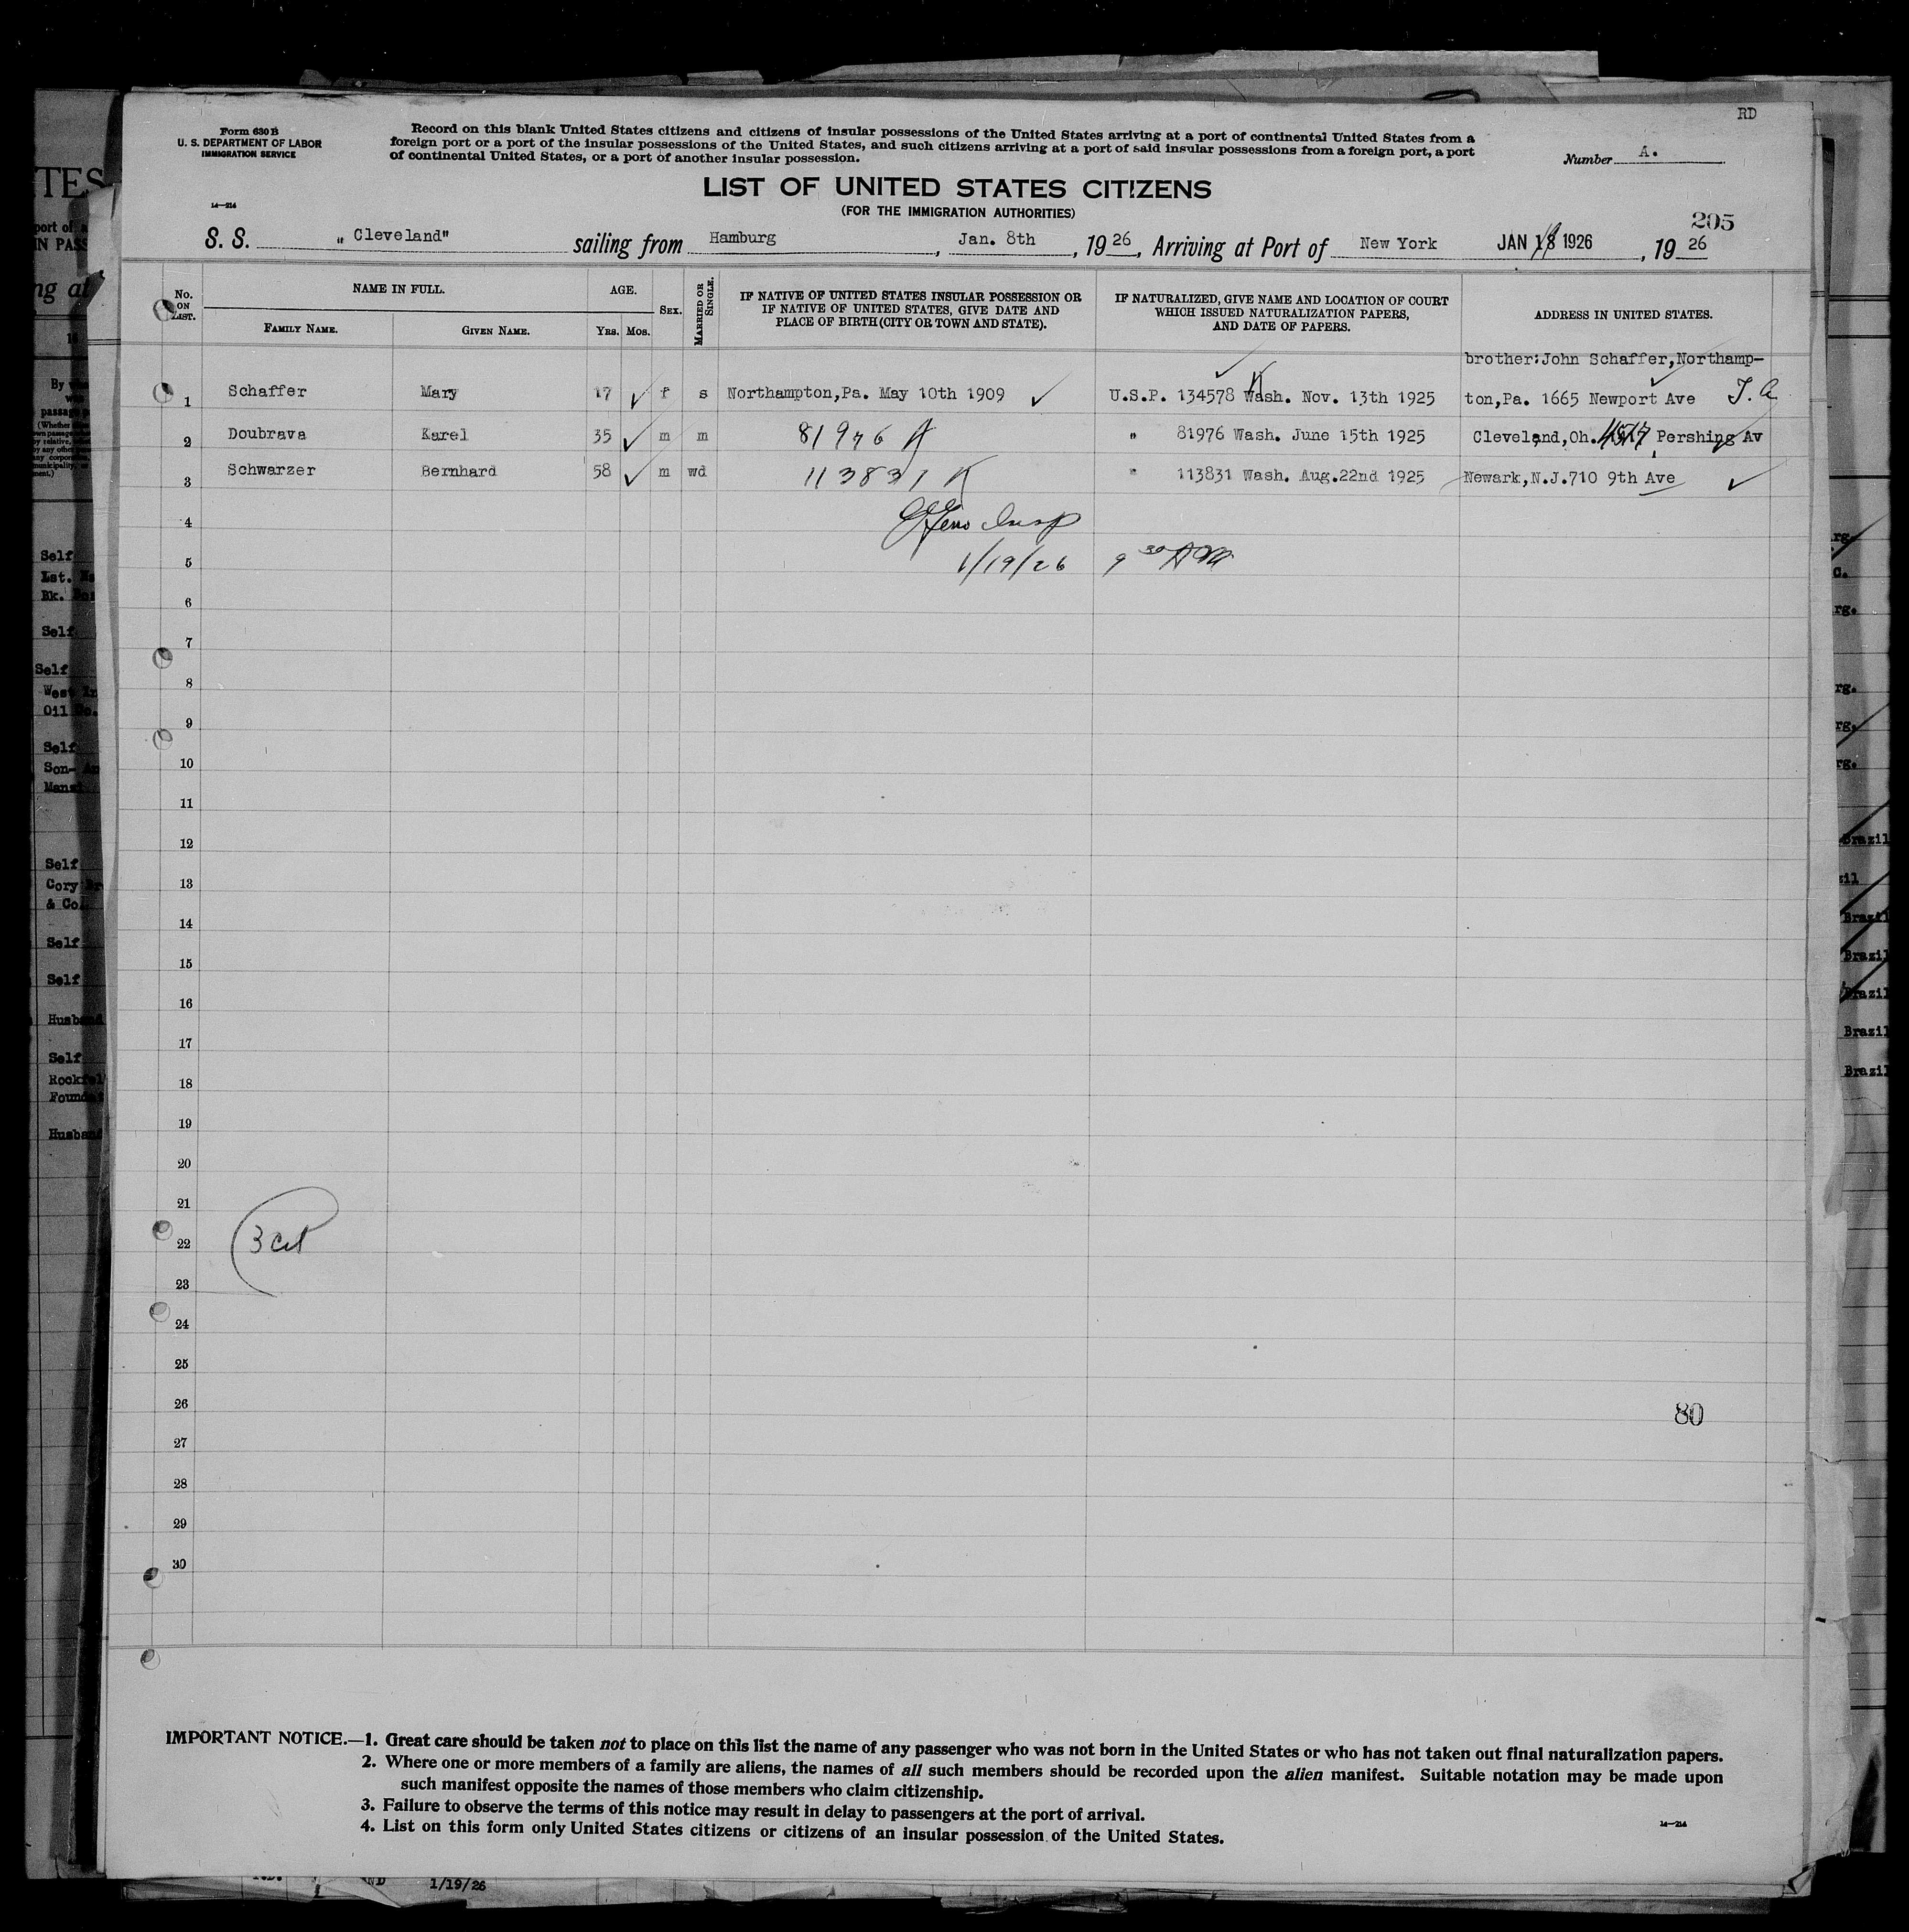 RD
Form 630 B
U. S. DEPARTMENT OF LABOR
IMMIGRATION SERVICE
Record on this blank United States citizens and citizens of insular possessions of the United States arriving at a port of continental United States from a
foreign port or a port of the insular possessions of the United States, and such citizens arriving at a port of said insular possessions from a foreign port, a port
of continental United States, or a port of another insular possession.
Number A.
LIST OF UNITED STATES CITIZENS
(FOR THE IMMIGRATION AUTHORITIES)
14—214
205
S. S. „ Cleveland" sailing from Hamburg, Jan. 8th, 1926, Arriving at Port of New York JAN 1926, 1926
No. ON LIST.
NAME IN FULL.
FAMILY NAME. GIVEN NAME.
AGE.
YRS. MOS.
SEX.
MARRIED OR SINGLE.
IF NATIVE OF UNITED STATES INSULAR POSSESSION OR
IF NATIVE OF UNITED STATES, GIVE DATE AND
PLACE OF BIRTH (CITY OR TOWN AND STATE).
IF NATURALIZED, GIVE NAME AND LOCATION OF COURT
WHICH ISSUED NATURALIZATION PAPERS,
AND DATE OF PAPERS.
ADDRESS IN UNITED STATES.
brother:John Schaffer,Northamp-
1 Schaffer Mary 17 ✓ f s Northampton,Pa. May 10th 1909 ✓ U.S.P. 134578 Wash. Nov. 13th 1925 ton,Pa. 1665 Newport Ave
2 Doubrava Karel 35 ✓ m m 81976 " 81976 Wash. June 15th 1925 Cleveland,Oh. Pershing Av
3 Schwarzer Bernhard 58 ✓ m wd 113831 K " 113831 Wash. Aug.22nd 1925 Newark,N.J.710 9th Ave ✓
4 Insp
5 1/19/26 9 30 AM
6
7
8
9
10
11
12
13
14
15
16
17
18
19
20
21
22
23
24
25
26
27
28
29
30
80
IMPORTANT NOTICE.—1. Great care should be taken not to place on this list the name of any passenger who was not born in the United States or who has not taken out final naturalization papers.
2. Where one or more members of a family are aliens, the names of all such members should be recorded upon the alien manifest. Suitable notation may be made upon
such manifest opposite the names of those members who claim citizenship.
3. Failure to observe the terms of this notice may result in delay to passengers at the port of arrival.
4. List on this form only United States citizens or citizens of an insular possession of the United States.
14—214
1/19/26